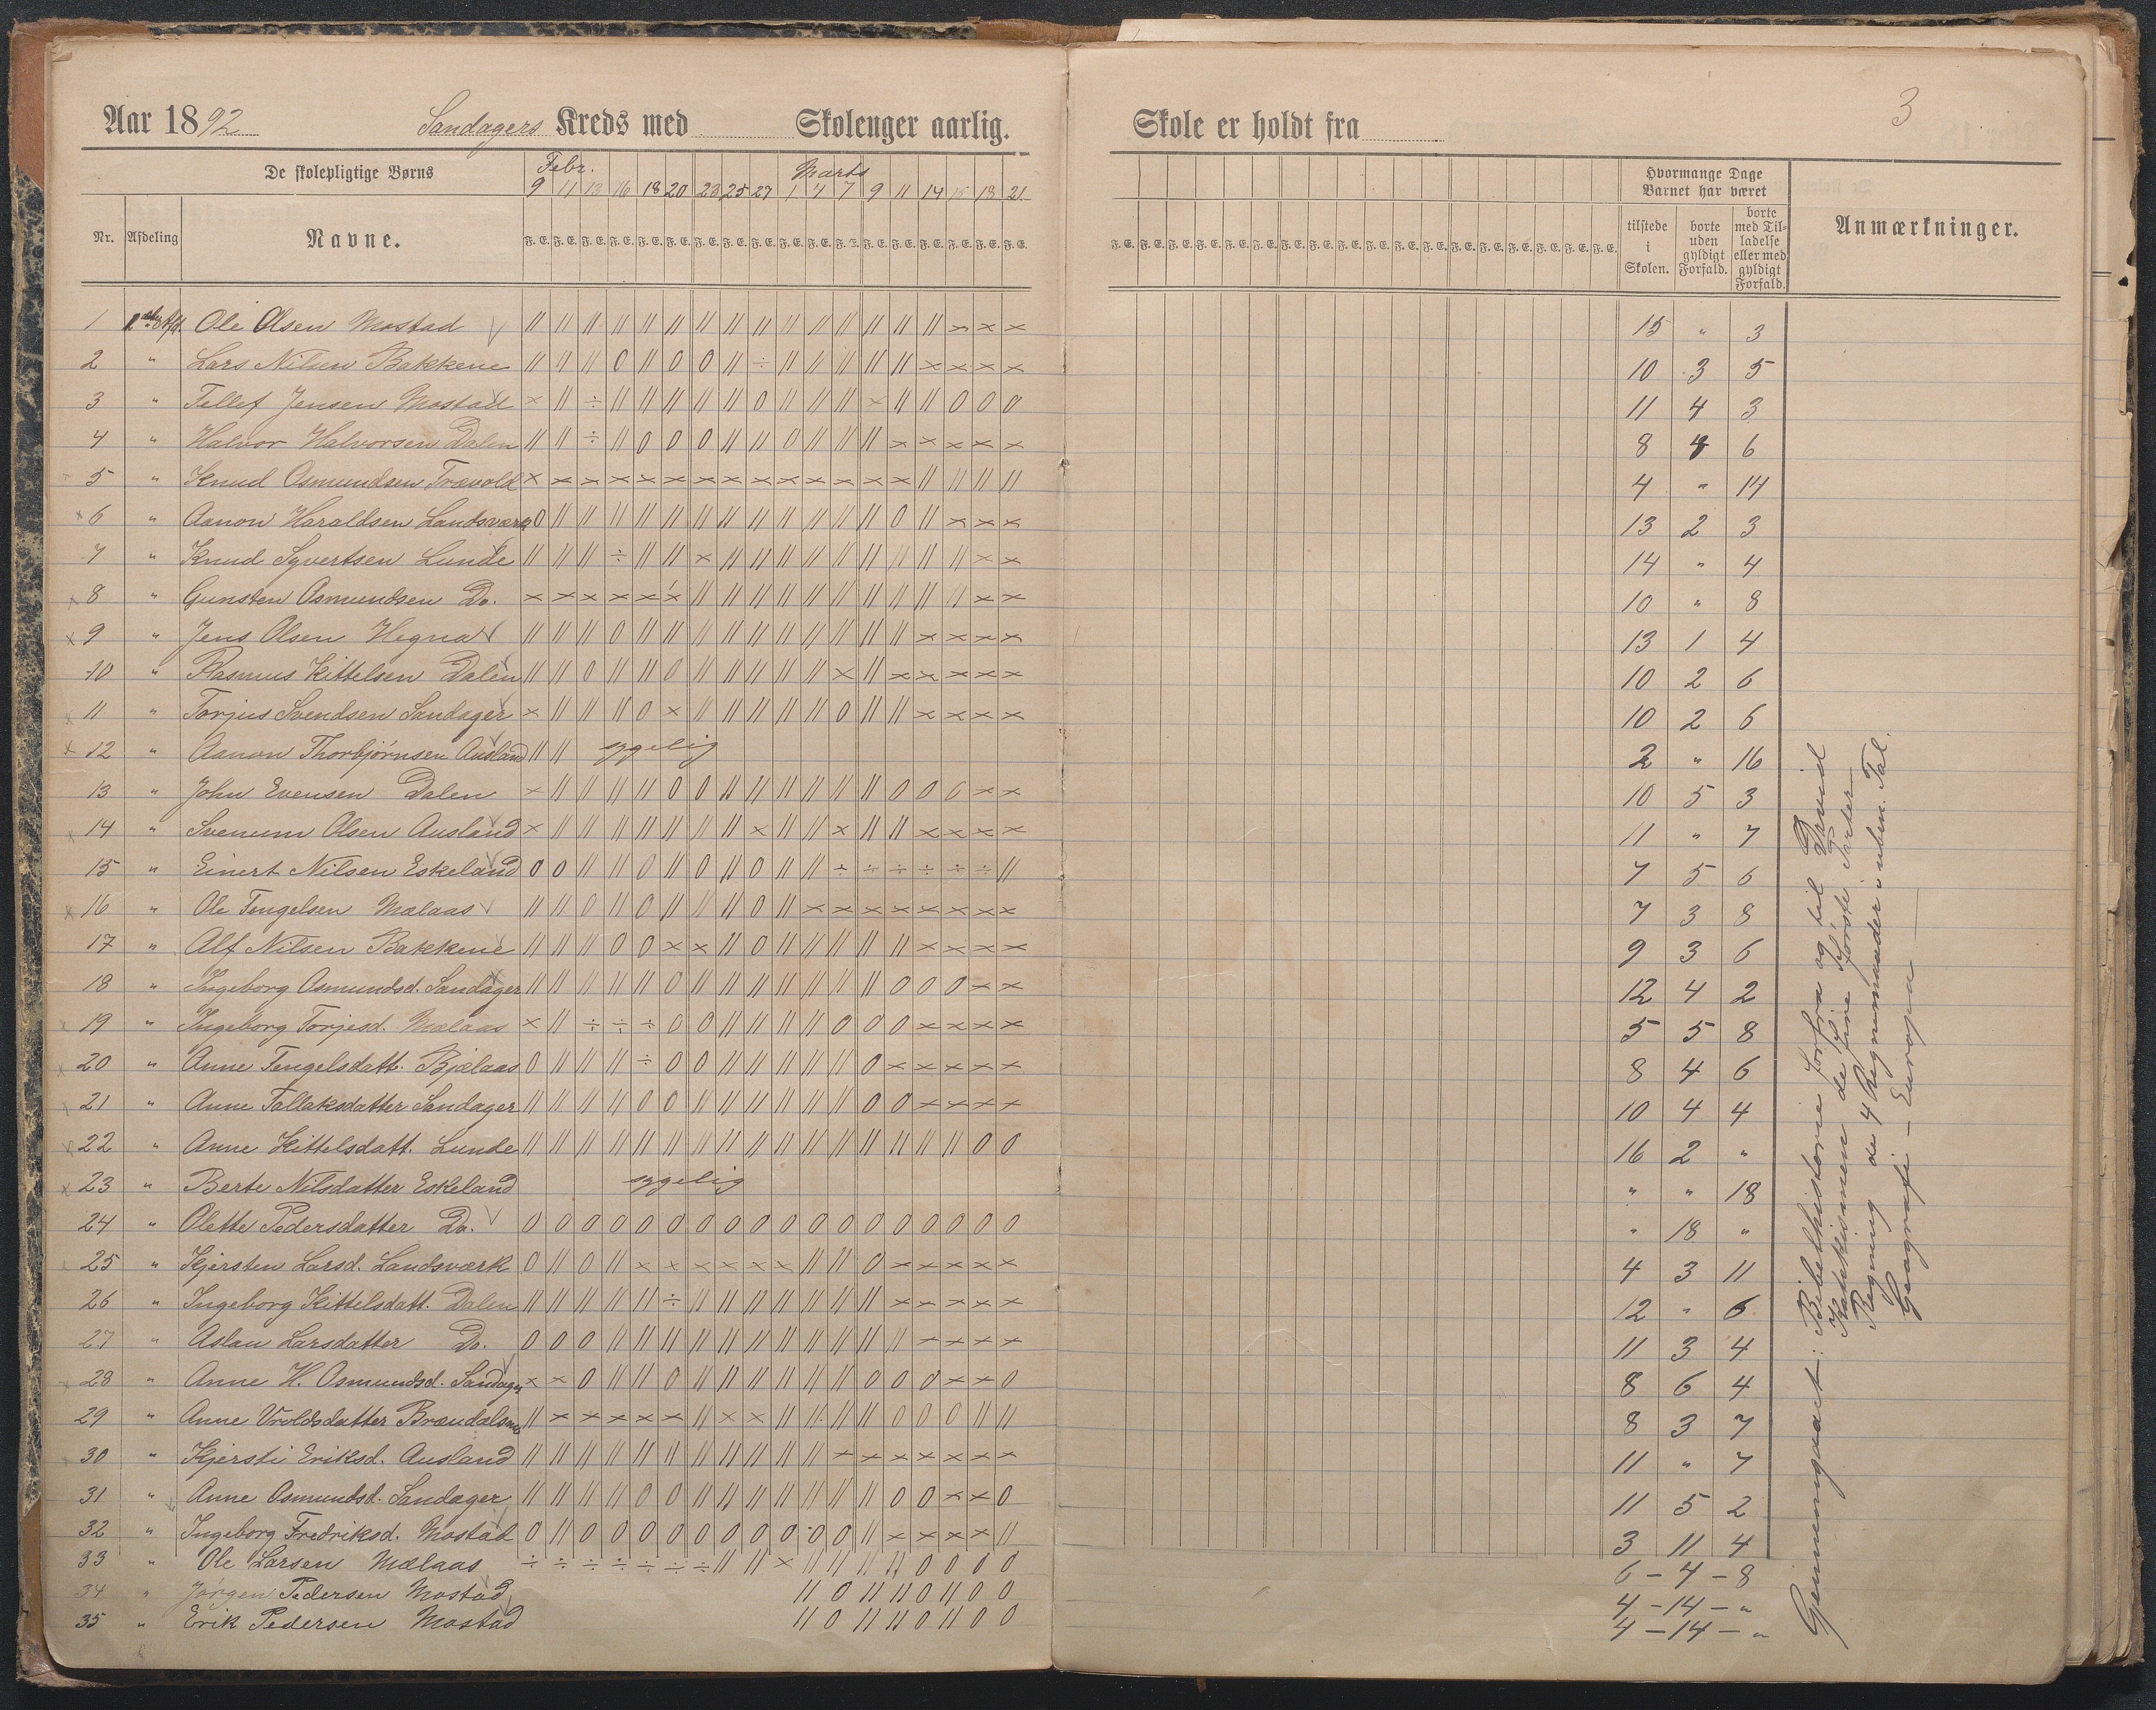 Aar 1892 Sandagers Kreds med Skolenger aarlig.
De skolepligtige Børns
Febr. Marts
9 11 13 16 18 20 23 25 27 1 4 7 9 11 14 16 18 21
Nr. Afdeling Navne. F. E. F. E. F. E. F. E. F. E. F. E. F. E. F. E. F. E. F. E. F. E. F. E. F. E. F. E. F. E. F. E. F. E. F. E.
1 Ole Olsen Mostad
2 " Lars Nilsen Bakkene
3 " Tellef Jensen Mostad
4 " Halvor Halvorsen Dalen
5 " Knud Osmundsen Trævold
6 " Aanon Haraldsen Landsværk
7 " Knud Syvertsen Lunde
8 " Gunsten Osmundsen Do.
9 " Jens Olsen Hegna
10 " Rasmus Kittelsen Dalen
11 " Torjus Svendsen Sandager
12 " Aanon Thorbjørnsen Ausland sygelig
13 " John Evensen Dalen
14 " Svenum Olsen Ausland
15 " Einert Nilsen Eskeland
16 " Ole Tengelsen Mælaas
17 " Alf Nilsen Bakkene
18 " Ingeborg Osmundsd. Sandager
19 " Ingeborg Torjesd. Mælaas
20 " Anne Tengelsdatt. Bjælaas
21 " Anne Tallaksdatter Sandager
22 " Anne Kittelsdatt. Lunde
23 " Berte Nilsdatter Eskeland sygelig
24 " Olette Pedersdatter Do.
25 " Kjersten Larsd. Landsværk
26 " Ingeborg Kittelsdatt. Dalen
27 " Aslau Larsdatter Do.
28 " Anne H. Osmundsd. Sandager
29 " Anne Vroldsdatter Brændalsmo
30 " Kjersti Eriksd. Ausland
31 " Anne Osmundsd. Sandager
32 " Ingeborg Fredriksd. Mostad
33 " Ole Larsen Mælaas
34 " Jørgen Pedersen Mostad
35 " Erik Pedersen Mostad
3
Skole er holdt fra
Hvormange Dage
Barnet har været
tilstede i Skolen.
borte uden gyldigt Forfald.
borte med Tilladelse eller med gyldigt Forfald.
Anmærkninger.
F. E. F. E. F. E. F. E. F. E. F. E. F. E. F. E. F. E. F. E. F. E. F. E. F. E. F. E. F. E. F. E. F. E. F. E.
15 " 3
10 3 5
11 4 3
8 4 6
4 " 14
13 2 3
14 " 4
10 " 8
13 1 4
10 2 6
10 2 6
2 " 16
10 5 3
11 " 7
7 5 6
7 3 8
9 3 6
12 4 2
5 5 8
8 4 6
10 4 4
16 2 "
" " 18
" 18 "
4 3 11
12 " 6
11 3 4
8 6 4
8 3 7
11 " 7
11 5 2
3 11 4
6 - 4 - 8
4 - 14 - "
4 - 14 - "
Gjennemgaaet: Bibelhistorie forfra og til David
Katekismen de fire første Parter
Regning de 4 Regnemaader i uben. Tal.
Geografi - Europa